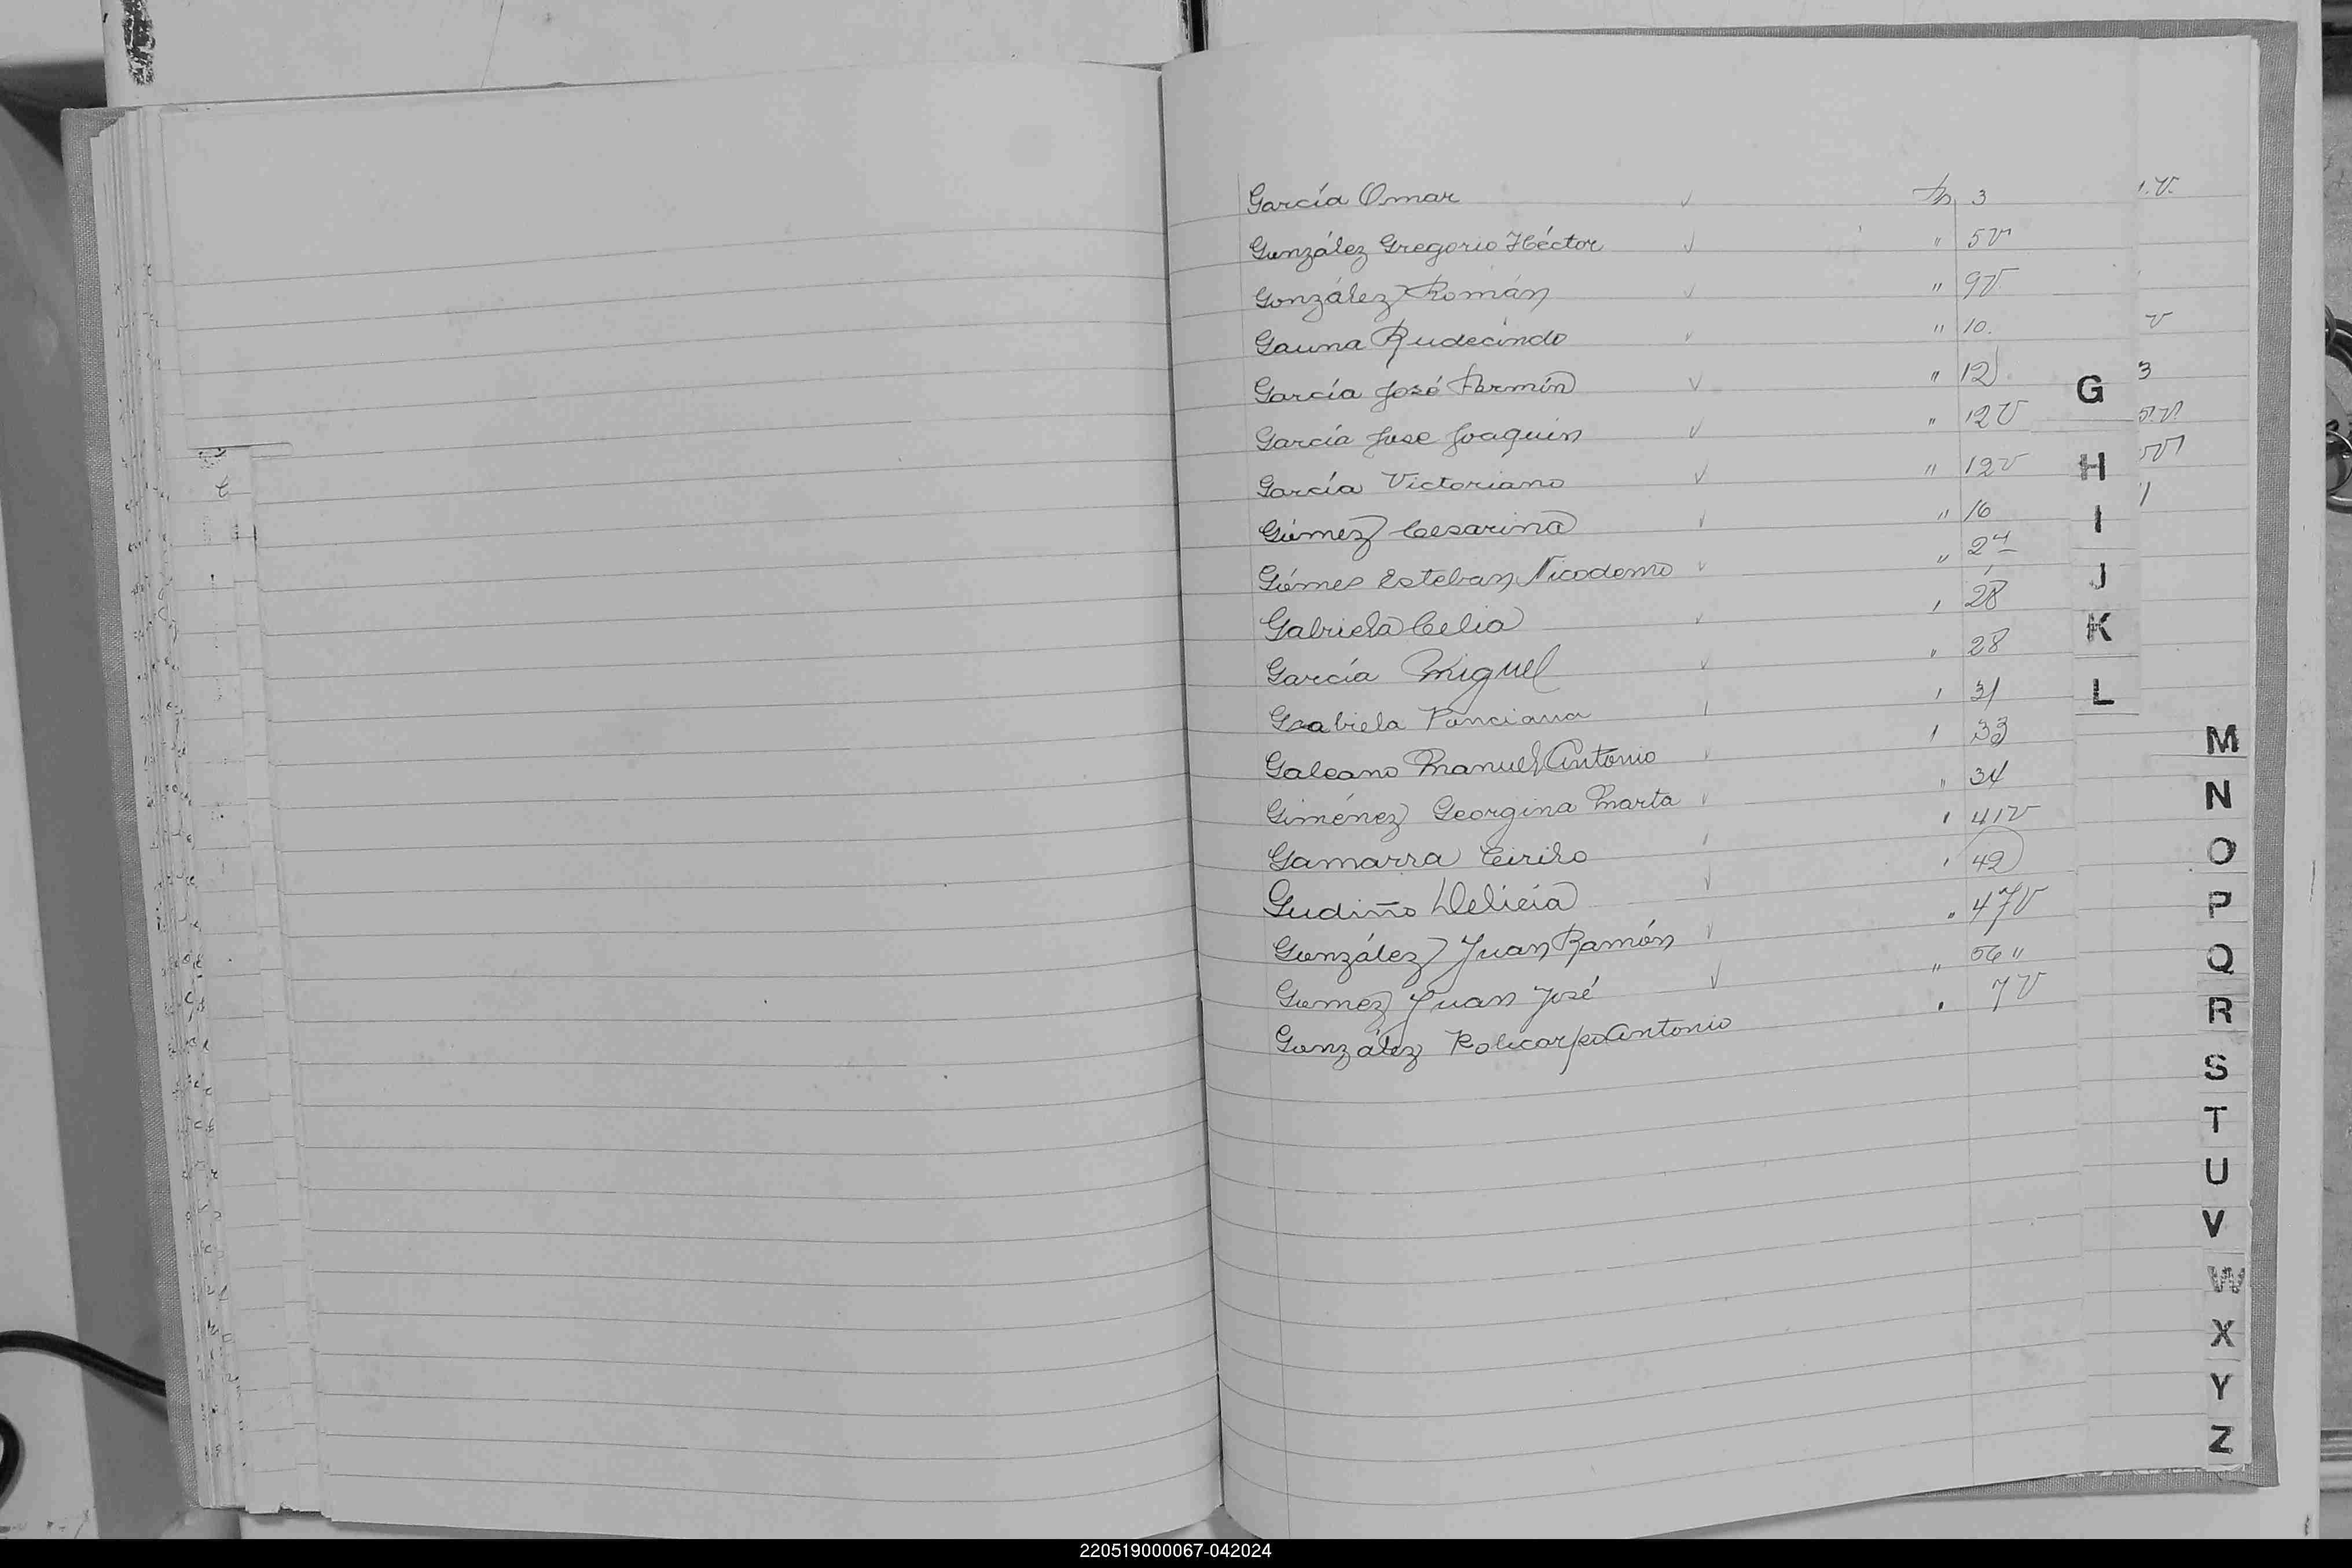 García Omar ✓ 3
González Gregorio Héctor ✓ " 5v
González Román ✓ " 9v
Gauna Rudecindo ✓ " 10.
García José Fermín ✓ " 12
García Jose Joaquin ✓ " 12v
García Victoriano ✓ " 12v
Gómez Cesarina ✓ " 16
Gómes Esteban Nicodemo ✓ " 24
Gabriela Celia ✓ " 28
García Miguel ✓ " 28
Gabriela Ponciana " 31
Galeano Manuel Antonio " 33
Giménez Georgina Marta ✓ " 34
Gamarra Cirilo " 41v
Gudiño Delicia ✓ " 42
González Juan Ramón ✓ " 47v
Gomez Juan José ✓ " 56 "
González Policarpo Antonio " 7v
1.v.
v
3
5.v.
G
H
I
J
K
L
M
N
O
P
Q
R
S
T
U
V
W
X
Y
Z
220519000067-042024